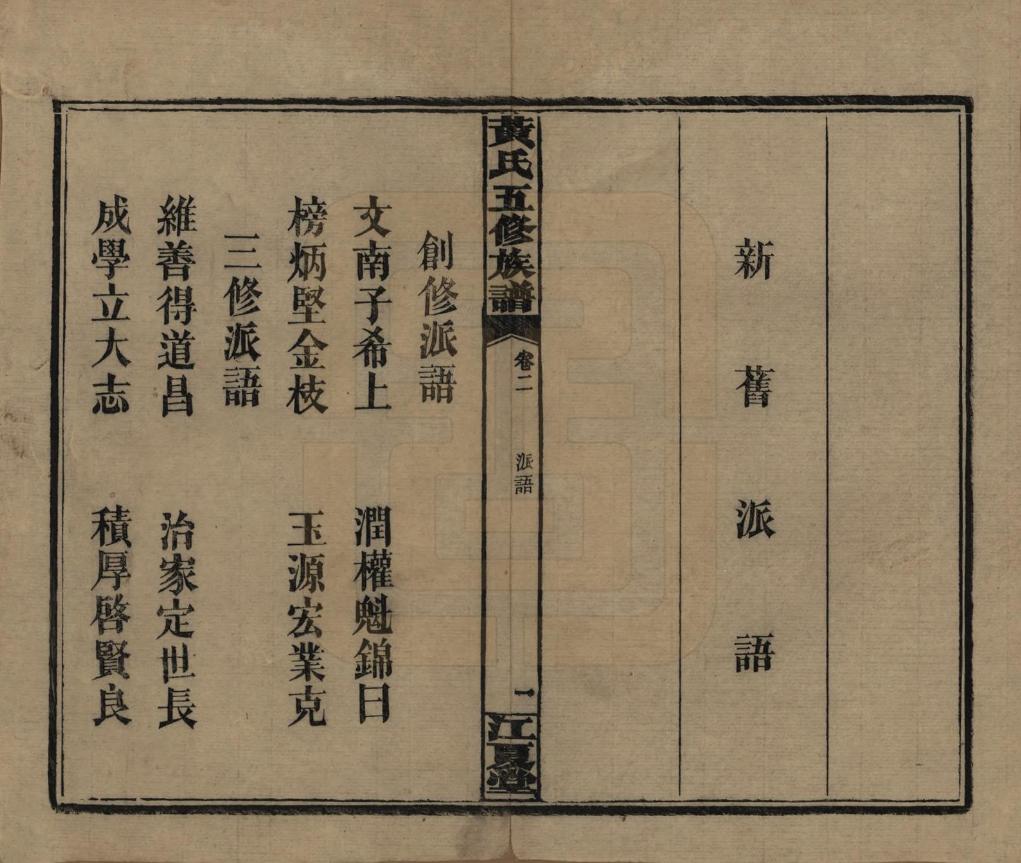 新舊派語
黃氏五修族譜 卷二 派語 一 江夏堂
創修派語
文南子希上 潤權魁錦日
榜炳堅金枝 玉源宏業克
三修派語
維善得道昌 治家定世長
成學立大志 積厚啓賢良